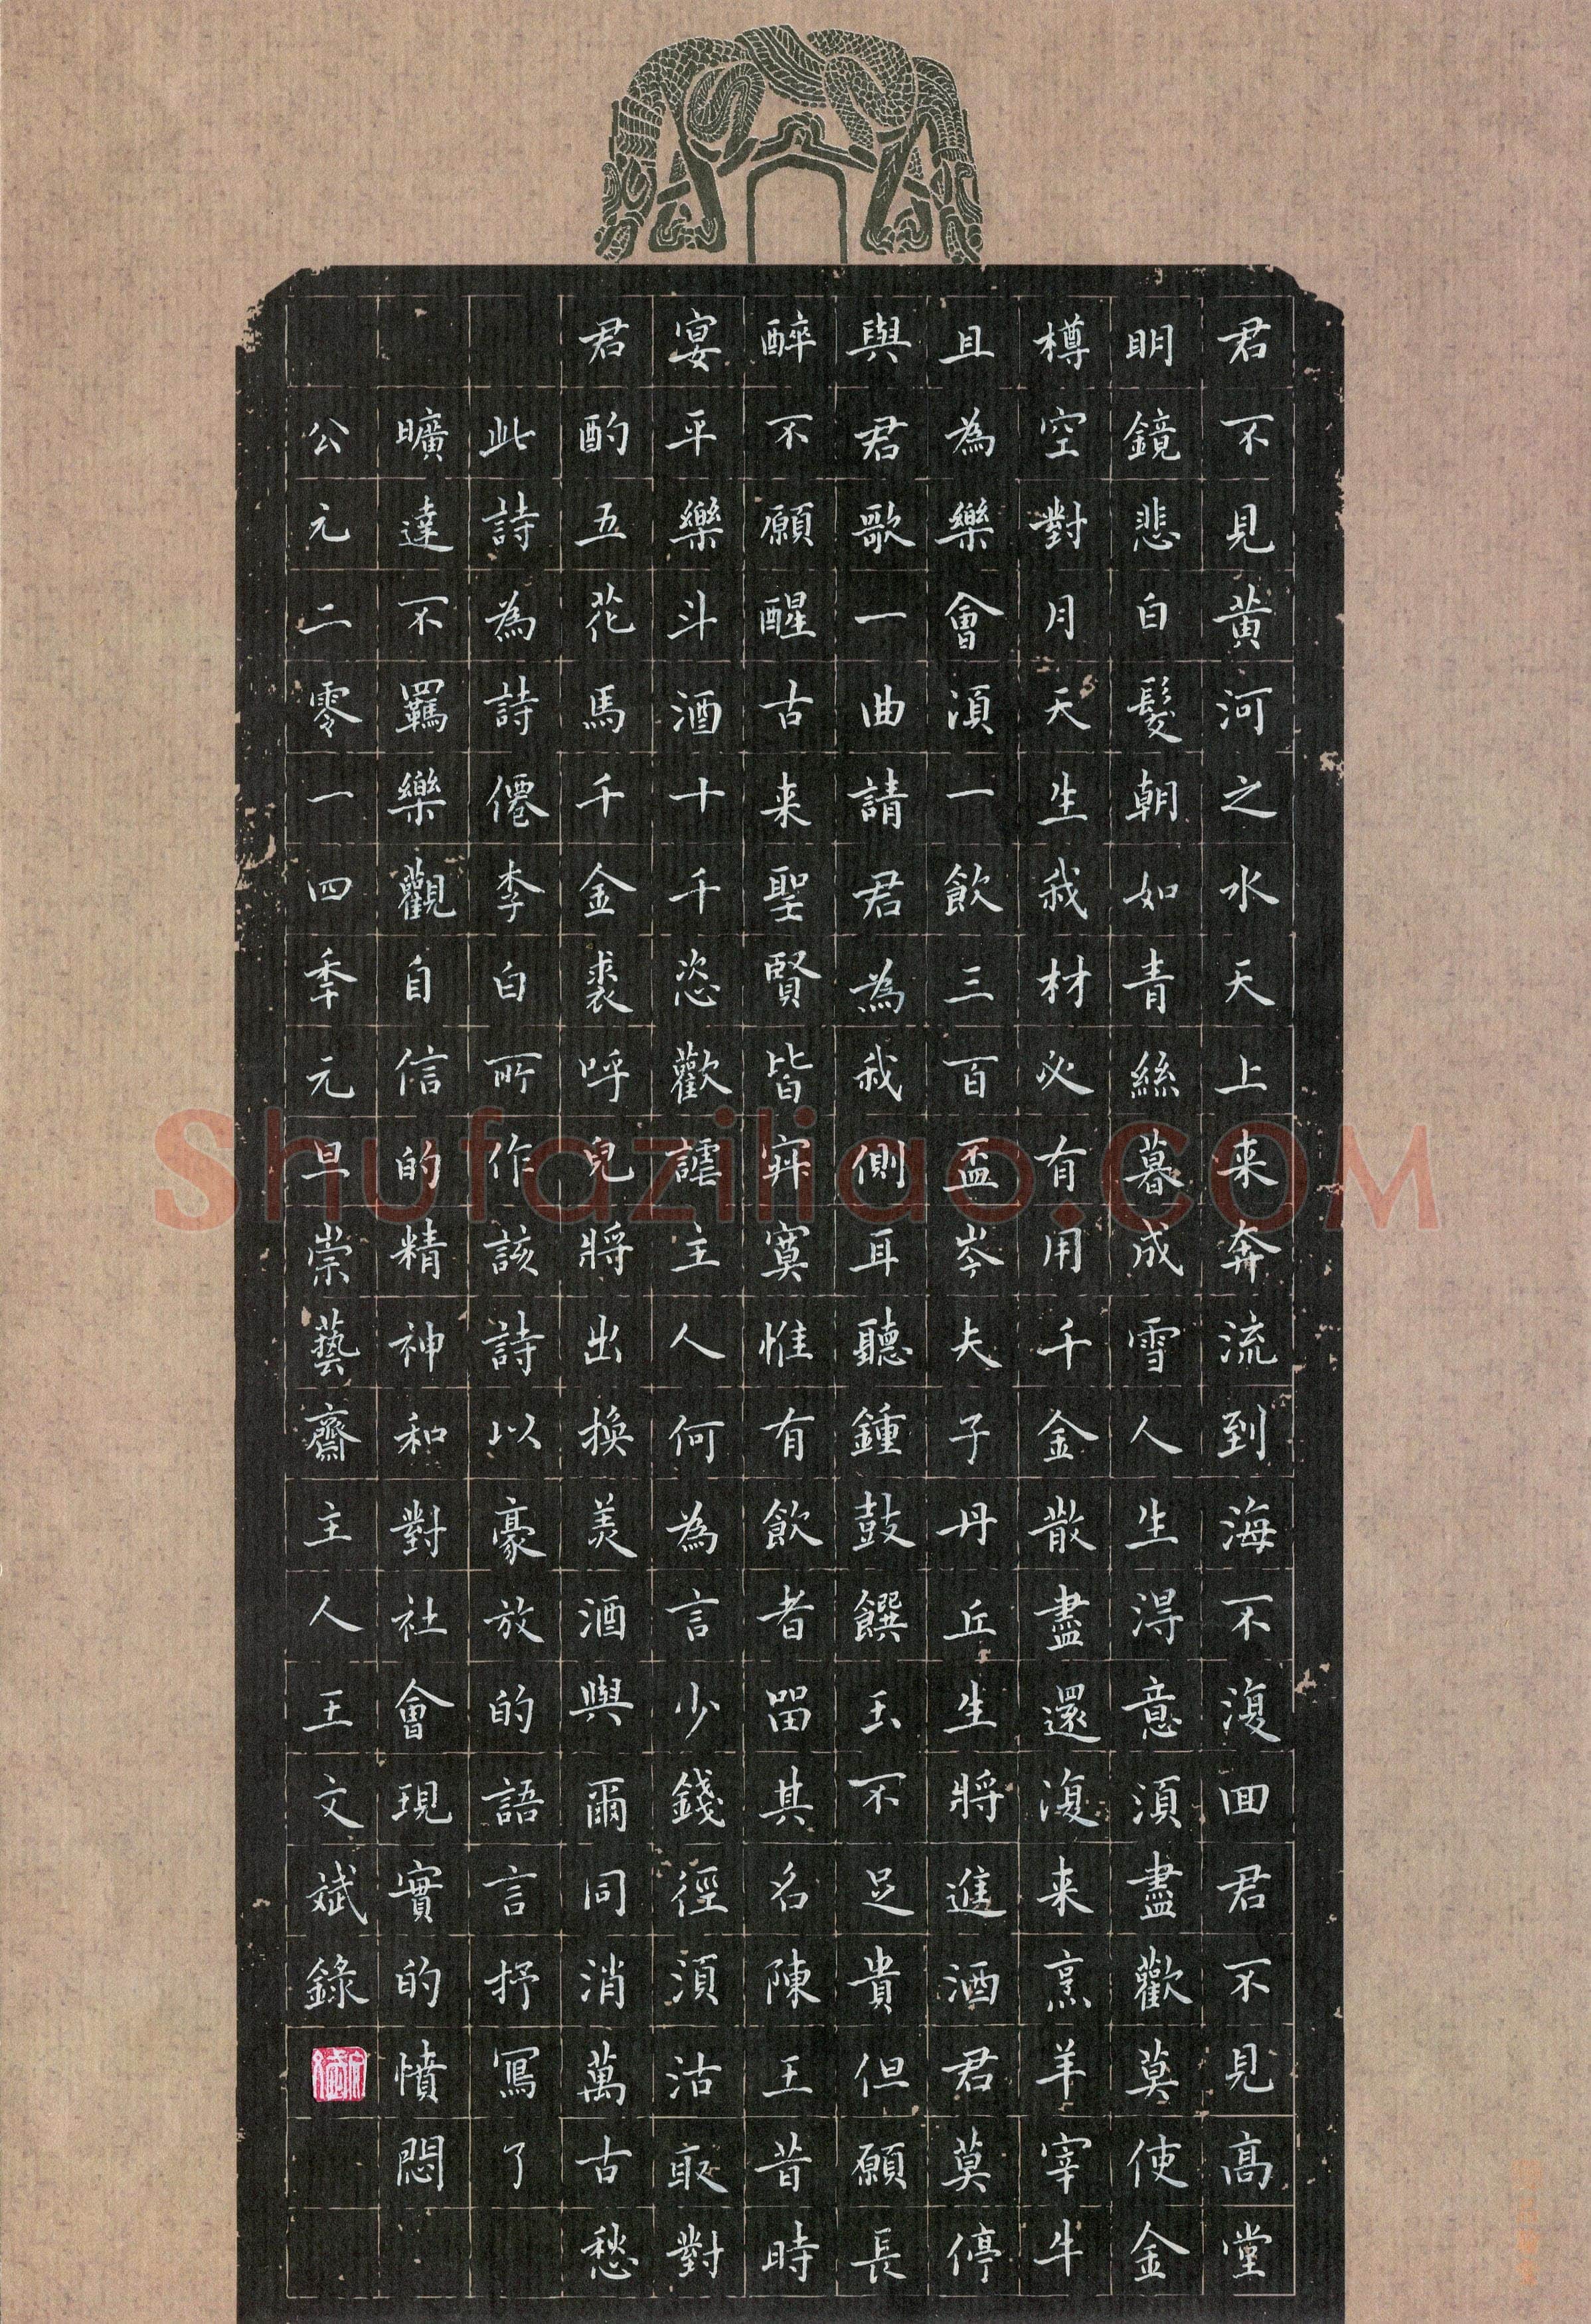 君不見黃河之水天上来奔流到海不復回君不見高堂
明鏡悲白髮朝如青絲暮成雪人生得意須盡歡莫使金
樽空對月天生我材必有用千金散盡還復来烹羊宰牛
且為樂會須一飲三百盃岑夫子丹丘生將進酒君莫停
與君歌一曲請君為我側耳聽鍾鼓饌玉不足貴但願長
醉不願醒古来聖賢皆寂寞惟有飲者留其名陳王昔時
宴平樂斗酒十千恣歡謔主人何為言少錢徑須沽取對
君酌五花馬千金裘呼兒將出換美酒與爾同消萬古愁
此詩為詩僊李白所作該詩以豪放的語言抒寫了
曠達不羈樂觀自信的精神和對社會現實的憤悶
公元二零一四季元旦崇藝齋主人王文斌錄
Shufaziliao.COM